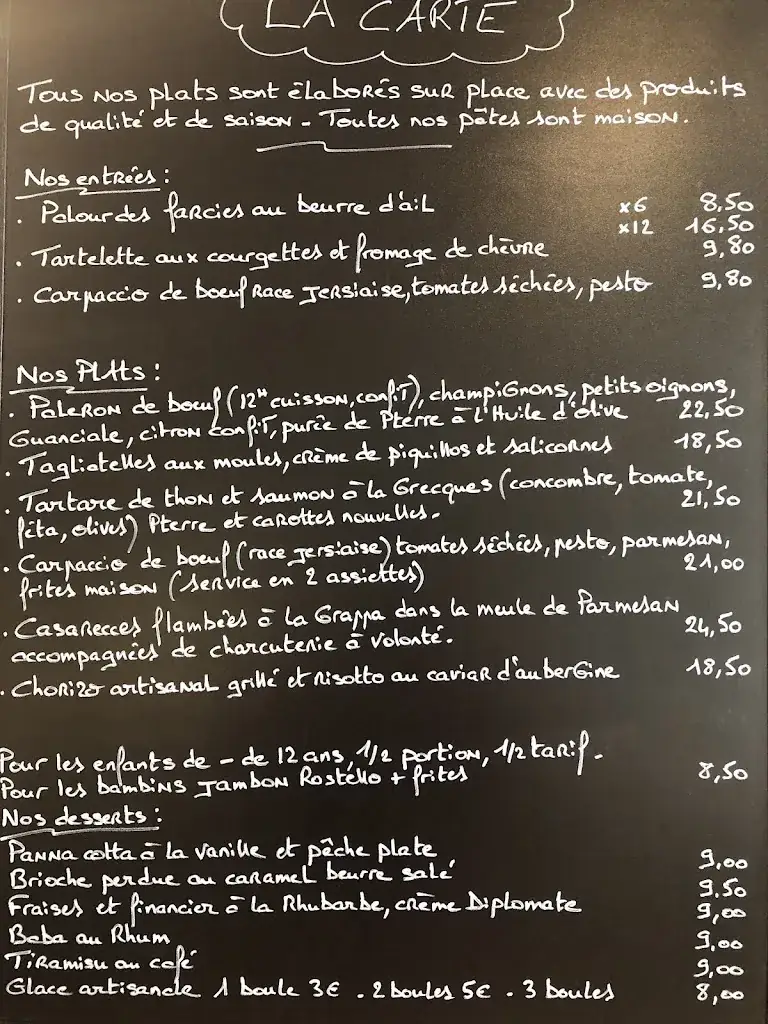 LA CARTE
Tous nos plats sont élaborés sur place avec des produits
de qualité et de saison - Toutes nos pâtes sont maison.
Nos entrées :
. Palourdes farcies au beurre d'ail x6 8,50
x12 16,50
. Tartelette aux courgettes et fromage de chèvre 9,80
. Carpaccio de boeuf Race Jersiaise, tomates séchées, pesto 9,80
Nos Plats :
. Paleron de boeuf (12H cuisson, confit), champignons, petits oignons,
Guanciale, citron confit, purée de Pterre à l'Huile d'olive 22,50
. Tagliatelles aux moules, crème de piquillos et salicornes 18,50
. Tartare de thon et saumon à la Grecques (concombre, tomate,
féta, olives) Pterre et carottes nouvelles. 21,50
. Carpaccio de boeuf (race jersiaise) tomates séchées, pesto, parmesan,
frites maison (service en 2 assiettes) 21,00
. Casarecces flambées à la Grappa dans la meule de Parmesan
accompagnées de charcuterie à volonté. 24,50
. Chorizo artisanal grillé et risotto au caviar d'aubergine 18,50
Pour les enfants de - de 12 ans, 1/2 portion, 1/2 tarif.
Pour les bambins Jambon Rostello + frites 8,50
Nos desserts :
Panna cotta à la vanille et pêche plate 9,00
Brioche perdue au caramel beurre salé 9.50
Fraises et financier à la Rhubarbe, crème Diplomate 9,00
Baba au Rhum 9,00
Tiramisu au café 9,00
Glace artisanale 1 boule 3€ . 2 boules 5€ . 3 boules 8,00